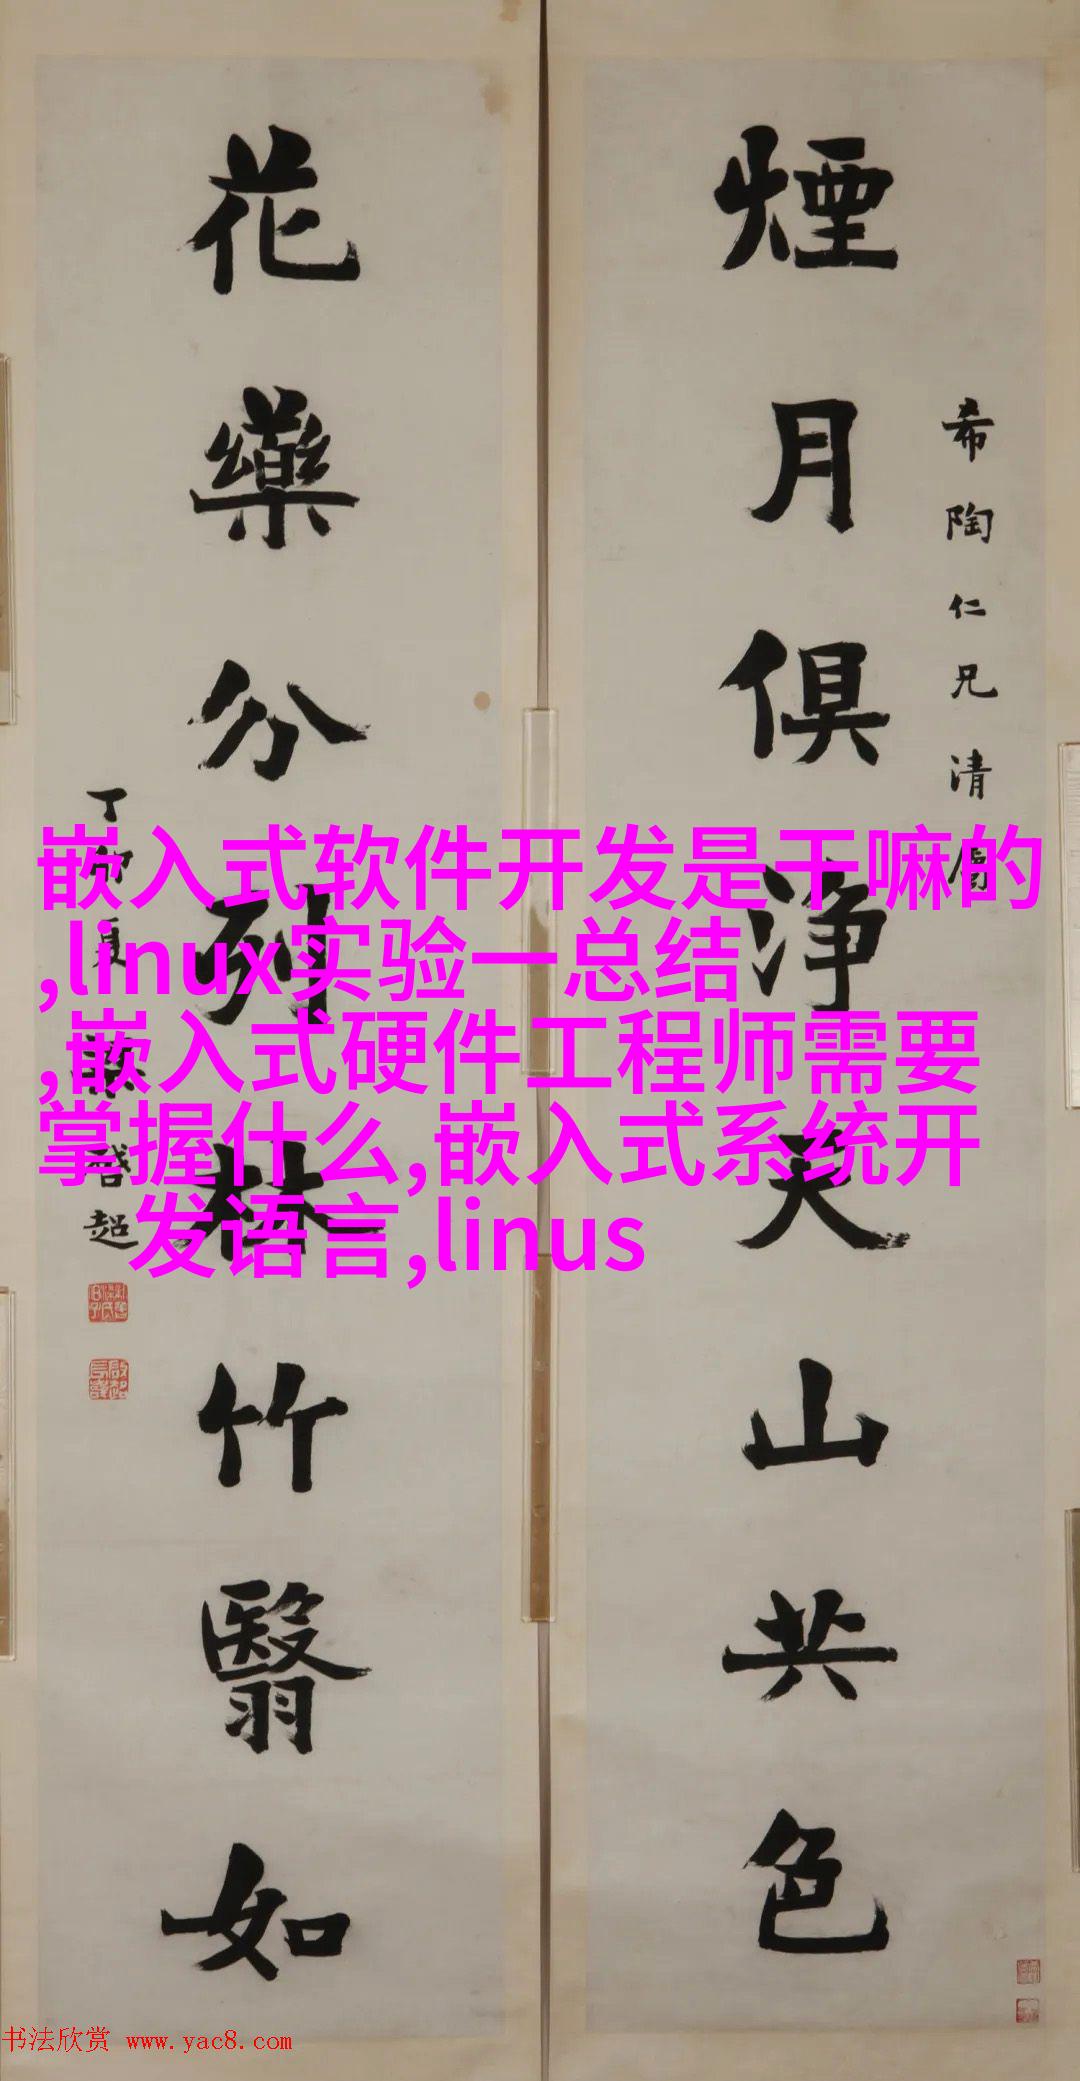 希陶仁兄清屬
煙月俱淨天山共色
花藥分列林竹翳如
丁卯夏 梁啓超
嵌入式软件开发是干嘛的
,linux实验一总结
,嵌入式硬件工程师需要
掌握什么,嵌入式系统开
发语言,linus
书法欣赏 www.yac8.com